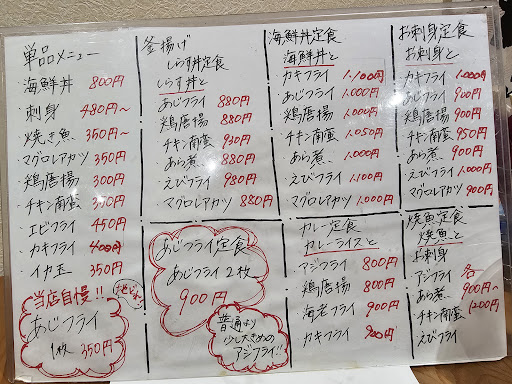 単品メニュー
海鮮丼 800円
刺身 480円~
焼き魚 350円~
マグロレアカツ 350円
鶏唐揚 300円
チキン南蛮 350円
エビフライ 450円
カキフライ 400円
イカ玉 350円
当店自慢!!
あじフライ
1枚 350円
釜揚げ
しらす丼定食
しらす丼と
あじフライ 880円
鶏唐揚 880円
チキン南蛮 930円
あら煮 880円
えびフライ 980円
マグロレアカツ 880円
海鮮丼定食
海鮮丼と
カキフライ 1,100円
あじフライ 1,000円
鶏唐揚 1,000円
チキン南蛮 1,050円
あら煮 1,000円
えびフライ 1,100円
マグロレアカツ 1,000円
お刺身定食
お刺身と
カキフライ 1,000円
あじフライ 900円
鶏唐揚 900円
チキン南蛮 950円
あら煮 900円
えびフライ 1,000円
マグロレアカツ 900円
あじフライ定食
あじフライ2枚
900円
普通より
少し大きめの
アジフライ!!
カレー定食
カレーライスと
アジフライ 800円
鶏唐揚 800円
海老フライ 900円
カキフライ 900円
焼魚定食
焼魚と
お刺身
アジフライ 各
あら煮 900円~
チキン南蛮 1200円
えびフライ